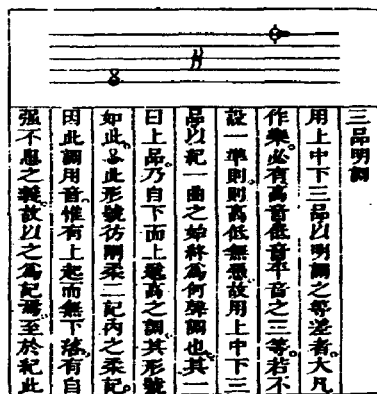 三品明調
用上中下三品以明調之等差者。大凡
作樂。必有高音低音平音之三等。若不
設一準則。則高低無憑。故用上中下三
品以紀一曲之始終為何聲調也。其一
曰上品。乃自下而上高之調。其形號
如此。此形號彷剛柔二記內之柔記。
因此調用音。惟有上起而無下落。有自
强不息之義。故以之為記焉。至於紀此